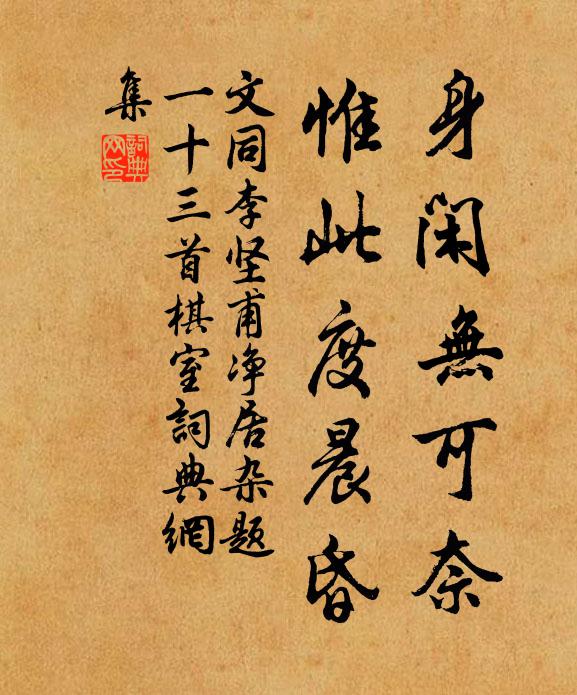 身閑無可奈
惟此度晨昏
文同李坚甫净居杂题
一十三首棋室詞典網
集
詞典网印